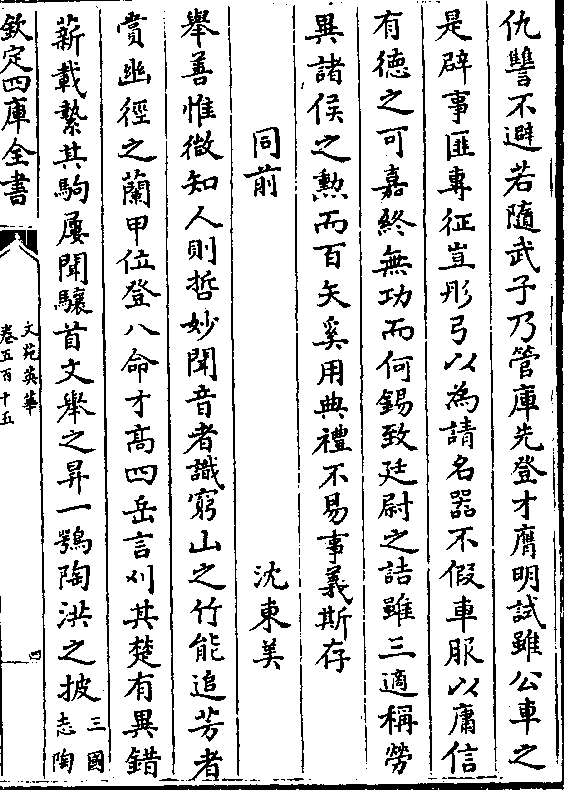 仇讐不避若隨武子乃管庫先登才膺明試雖公車之
是辟事匪專征豈彤弓以為請名器不假車服以庸信
有徳之可嘉終無功而何錫致廷尉之詰雖三適稱勞
異諸侯之勲而百矢奚用典禮不易事義斯存
同前 沈東美
舉善惟微知人則哲妙聞音者識窮山之竹能追芳者
賞幽徑之蘭甲位登八命才髙四岳言刈其楚有異錯
薪載縶其駒屢聞驤首文舉之昇一鶚陶洪之披三國志陶
欽定四庫全書
文苑英華
卷五百十五
四